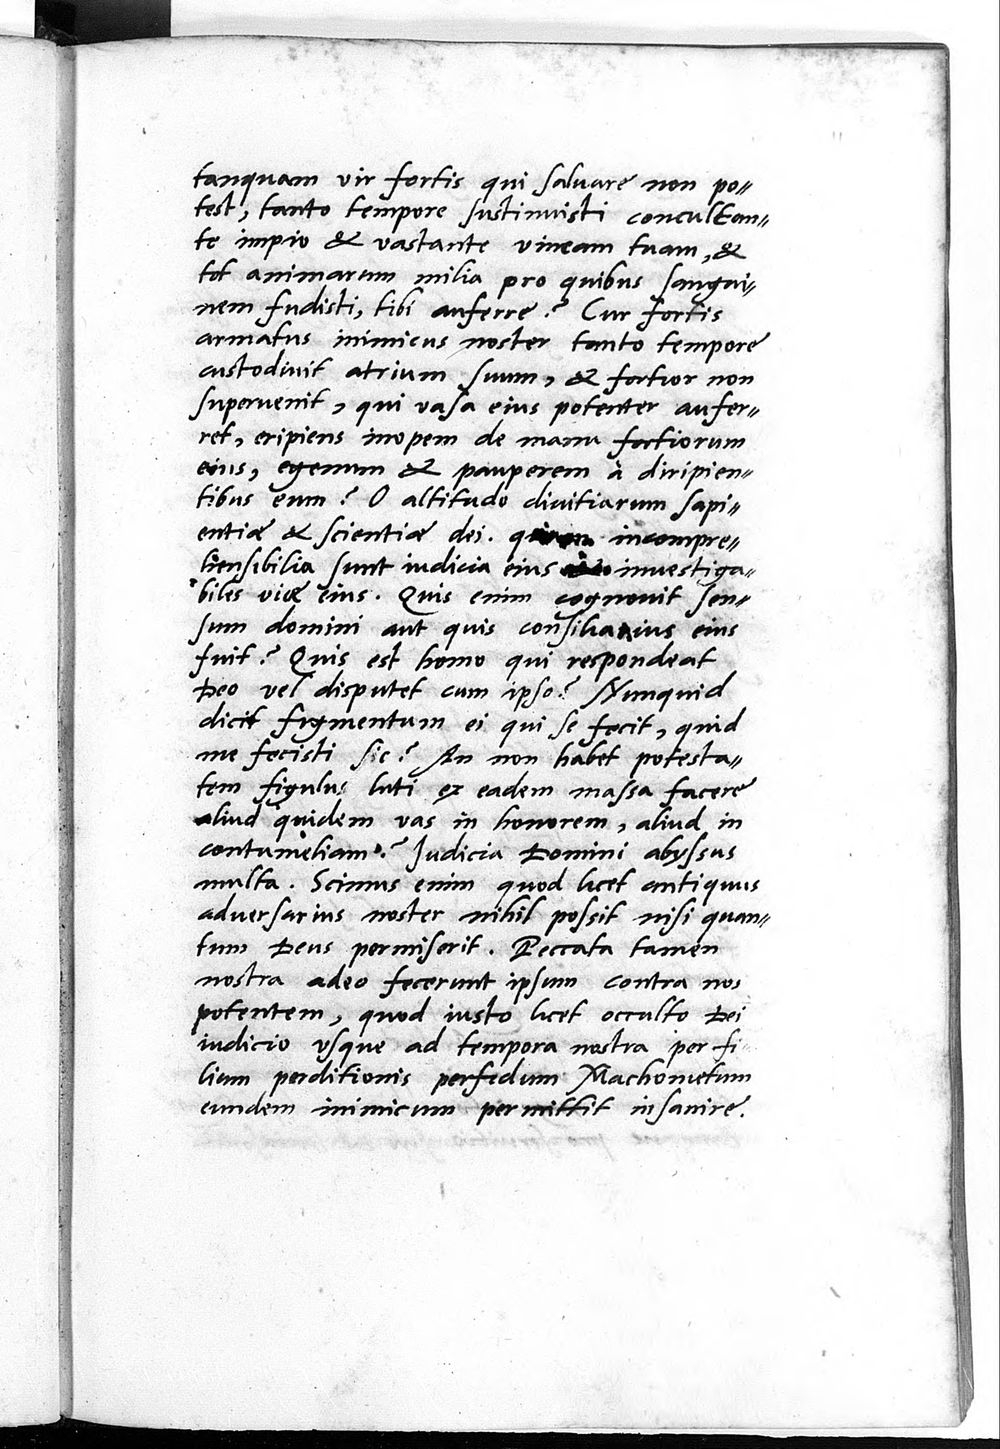 tanquam vir fortis qui saluare non po„
test, tanto tempore sustinuisti concultan„
te impio & vastante vineam tuam, &
tot animarum milia pro quibus sangui„
nem fudisti, tibi auferre? Cur fortis
armatus inimicus noster tanto tempore
custodiuit atrium suum, & fortior non
superuenit, qui vasa eius potenter aufer„
ret, eripiens inopem de manu fortiorum
eius, egenum & pauperem à diripien„
tibus eum? O altitudo diuitiarum sapi„
entiæ & scientiæ dei. incompre„
hensibilia sunt iudicia eius inuestiga„
biles viæ eius. Quis enim cognouit sen„
sum domini aut quis consiliarius eius
fuit? Quis est homo qui respondeat
Deo vel disputet cum ipso? Nunquid
dicit figmentum ei qui se fecit, quid
me fecisti sic? An non habet potesta„
tem figulus luti ex eadem massa facere
aliud quidem vas in honorem, aliud in
contumeliam? Iudicia Domini abyssus
multa. Scimus enim quod licet antiquus
aduersarius noster nihil possit nisi quan„
tum Deus permiserit. Peccata tamen
nostra adeo fecerunt ipsum contra nos
potentem, quod iusto licet occulto Dei
iudicio vsque ad tempora nostra per fi
lium perditionis perfidum Machometum
eundem inimicum permittit insanire.